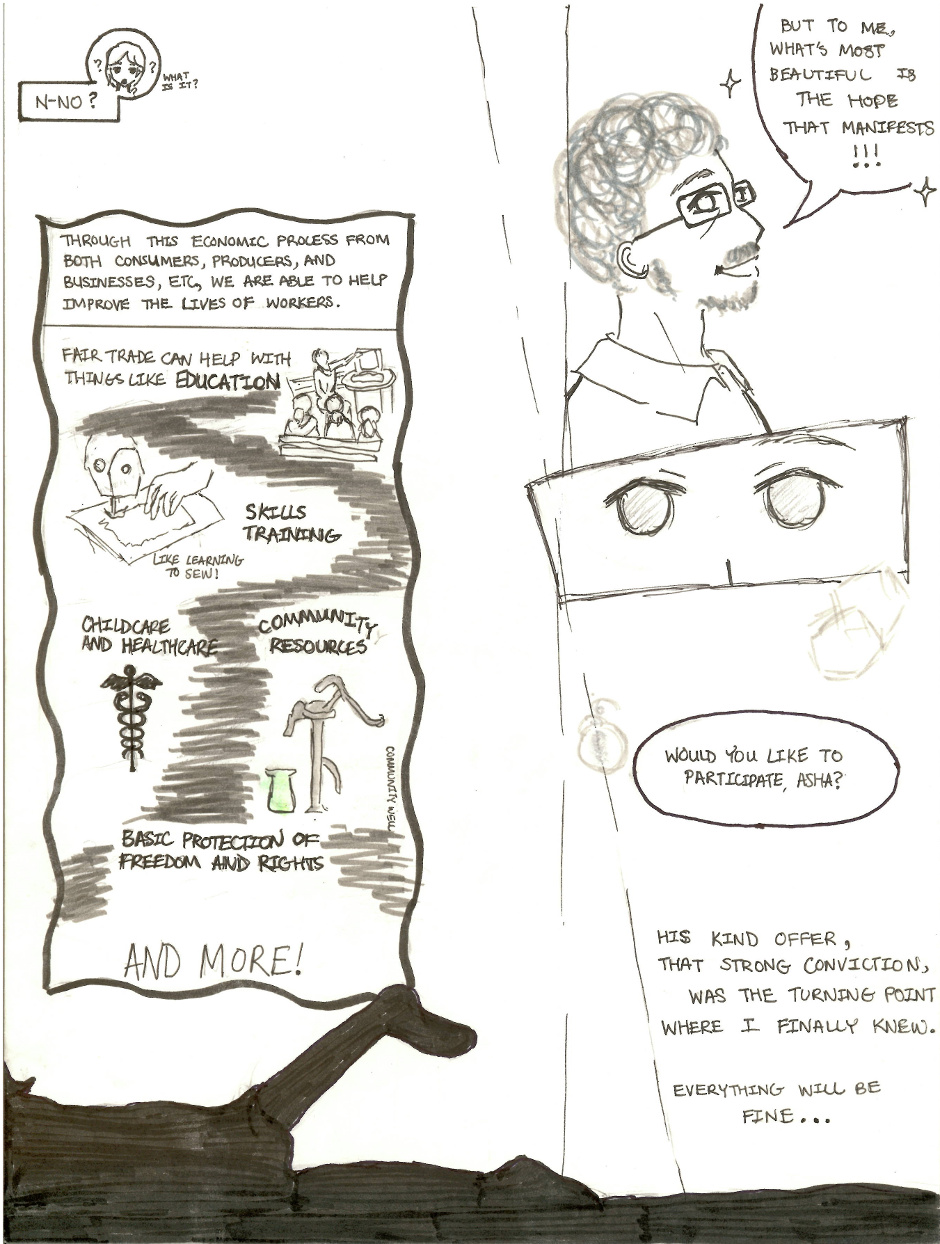 N-NO?
? ?
WHAT
IS IT?
THROUGH THIS ECONOMIC PROCESS FROM
BOTH CONSUMERS, PRODUCERS, AND
BUSINESSES, ETC, WE ARE ABLE TO HELP
IMPROVE THE LIVES OF WORKERS.
FAIR TRADE CAN HELP WITH
THINGS LIKE EDUCATION
SKILLS
TRAINING
LIKE LEARNING
TO SEW!
CHILDCARE
AND HEALTHCARE
COMMUNITY
RESOURCES
COMMUNITY WELL
BASIC PROTECTION OF
FREEDOM AND RIGHTS
AND MORE!
BUT TO ME,
WHAT'S MOST
BEAUTIFUL IS
THE HOPE
THAT MANIFESTS
!!!
WOULD YOU LIKE TO
PARTICIPATE, ASHA?
HIS KIND OFFER,
THAT STRONG CONVICTION,
WAS THE TURNING POINT
WHERE I FINALLY KNEW.
EVERYTHING WILL BE
FINE...